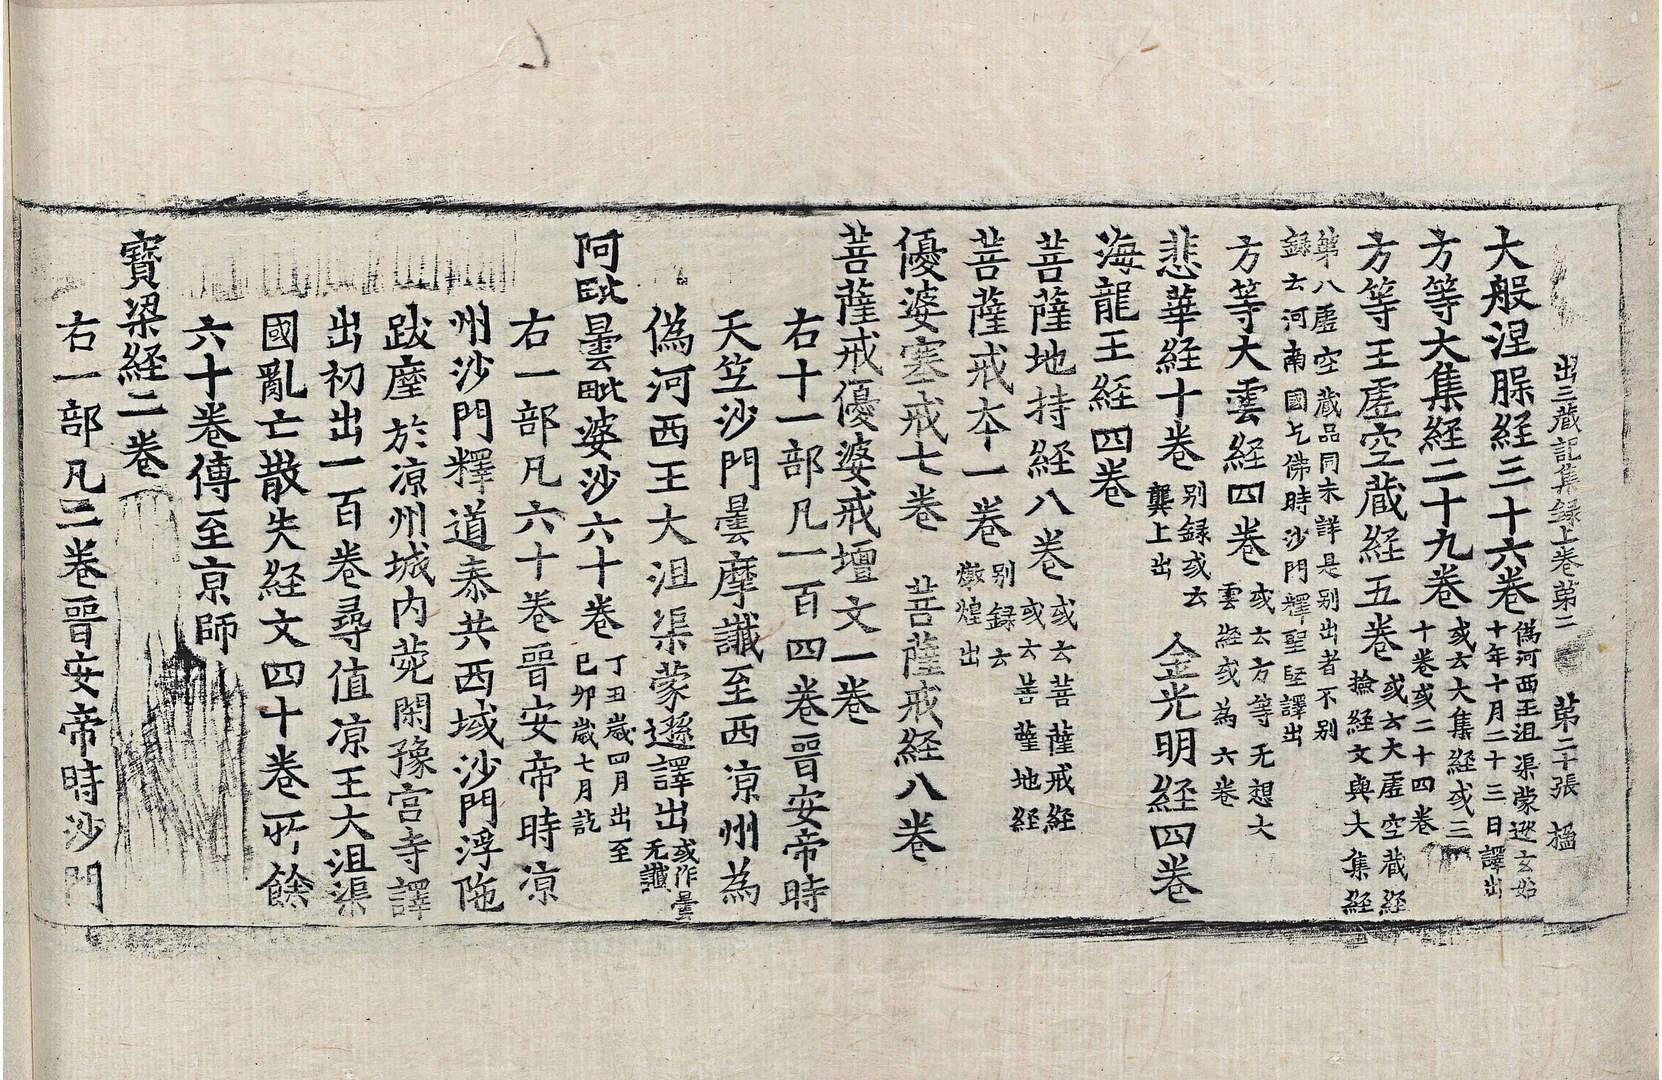 出三藏記集録上卷苐二　苐二十張　楹
大般涅脲経三十六卷僞河西王沮渠蒙遜玄始十年十月二十三日譯出
方等大集経二十九卷或云大集経或三十卷或二十四卷
方等王虗空蔵経五卷或云大虗空蔵経撿経文與大集経
第八虗空蔵品同未詳是别出者不别録云河南國乞佛時沙門釋聖堅譯出
方等大雲経四卷或云方等无想大雲経或為六卷
悲華経十卷别録或云龔上出　金光明経四卷
海龍王経四卷
菩薩地持経八卷或云菩薩戒経或云菩薩地経
菩薩戒夲一卷别録云燉煌出
優婆塞戒七卷　菩薩戒経八卷
菩薩戒優婆戒壇文一卷
右十一部凡一百四卷晉安帝時
天竺沙門曇摩讖至西涼州為
偽河西王大沮渠蒙遜譯出或作曇无讖
阿毗曇毗婆沙六十卷丁丑歳四月出至己卯歳七月訖
右一部凡六十卷晉安帝時涼
州沙門釋道泰共西域沙門浮陁
跋摩於涼州城内苑閑豫宫寺譯
出初出一百卷尋值涼王大沮渠
國亂亡散失経文四十卷所餘
六十卷傳至京師
寳梁経二卷
右一部凡二卷晉安帝時沙門